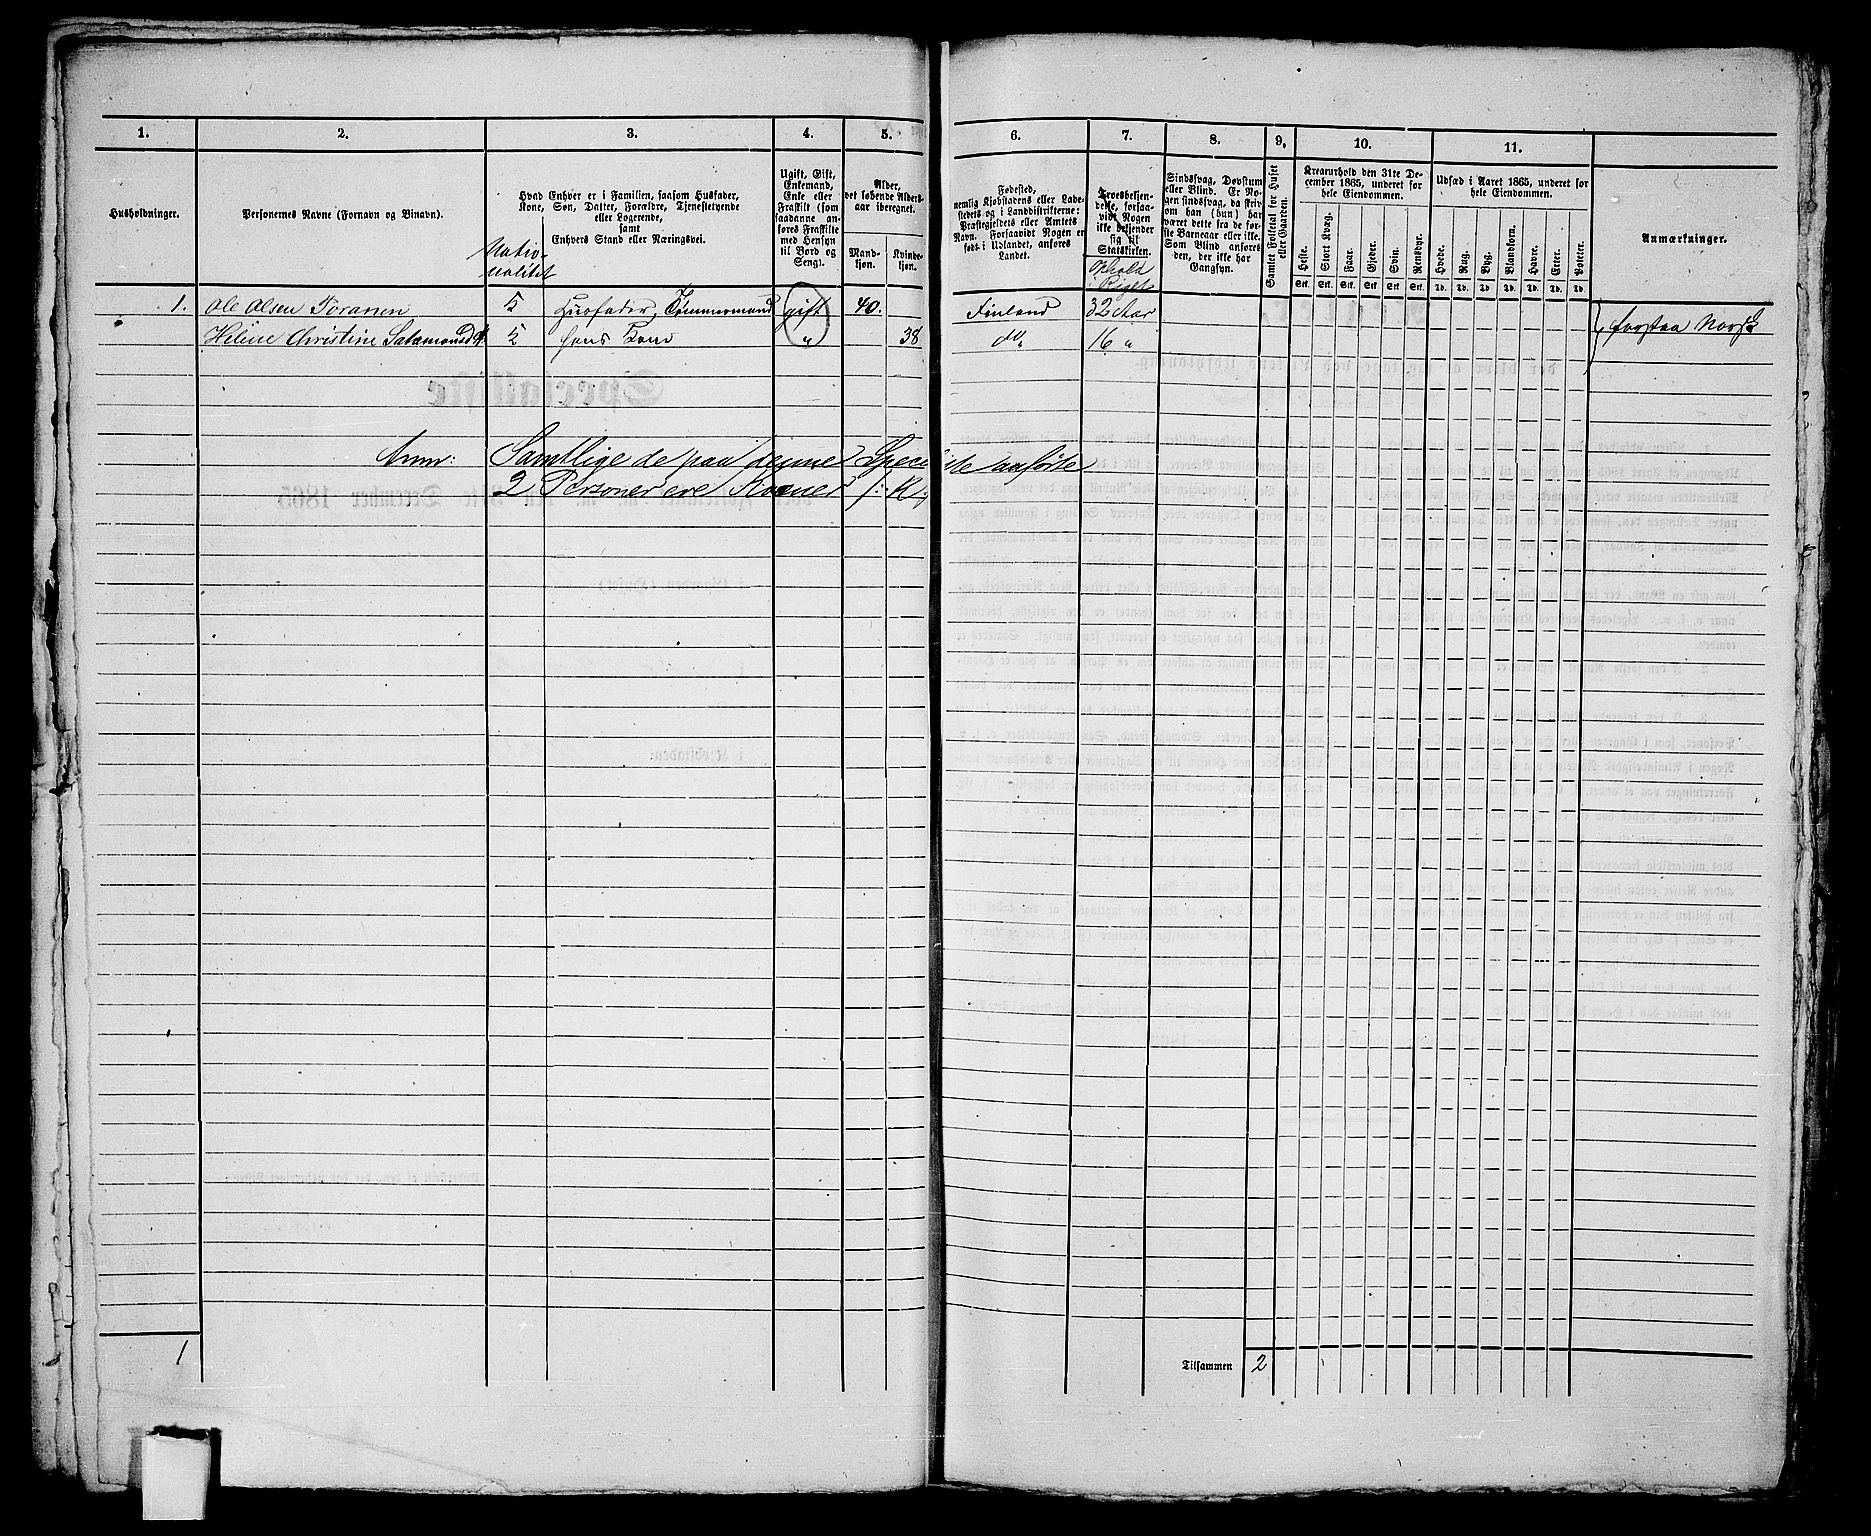 1. 2. 3. 4. 5. 6. 7. 8. 9. 10. 11.
Husholdninger.
Personernes Navne (Fornavn og Binavn).
Hvad Enhver er i Familien, saasom Husfader,
Kone, Søn, Datter, Forældre, Tjenestetyende
eller Logerende,
samt
Enhvers Stand eller Næringsvei.
Natio-
nalitet
Ugift, Gift,
Enkemand,
Enke eller
Fraskilt (som
saadanne an-
føres Fraskilte
med Hensyn
til Bord og
Seng).
Alder,
det løbende Alders-
aar iberegnet.
Mand-
kjøn.
Kvinde-
kjøn.
Fødested,
nemlig Kjøbstadens eller Lade-
stedets og i Landdistrikterne:
Præstegjeldets eller Amtets
Navn. Forsaavidt Nogen er
født i Udlandet, anføres
Landet.
Troesbekjen-
delse, forsaa-
vidt Nogen
ikke bekjender
sig til
Statskirken.
Ophold
i Riget
Sindssvag, Døvstum
eller Blind. Er No-
gen sindssvag, da skriv
om han (hun) har
været dette fra de før-
ste Barneaar eller ikke.
Som Blind anføres
den, der ikke har
Gangsyn.
Samlet Folketal for Huset
eller Gaarden.
Kreaturhold den 31te De-
cember 1865, underet for
hele Eiendommen.
Heste. Stort Kvæg. Faar. Gjeder. Svin. Rensdyr.
Stk. Stk. Stk. Stk. Stk. Stk.
Udsæd i Aaret 1865, underet for
hele Eiendommen.
Hvede. Rug. Byg. Blandkorn. Havre. Erter. Poteter.
Td. Td. Td. Td. Td. Td. Td.
Anmærkninger.
1. Ole Olsen Poranen 5 Husfader, Tømmermand gift 40. Finland 32 Aar } forstaa Norsk
Heline Christine Salamonsd. 5 hans Kone " 38 do, 16 "
Anm: Samtlige de paa denne Speciliste anførte
2 Personer ere Kvæner /: K :/
1
Tilsammen 2